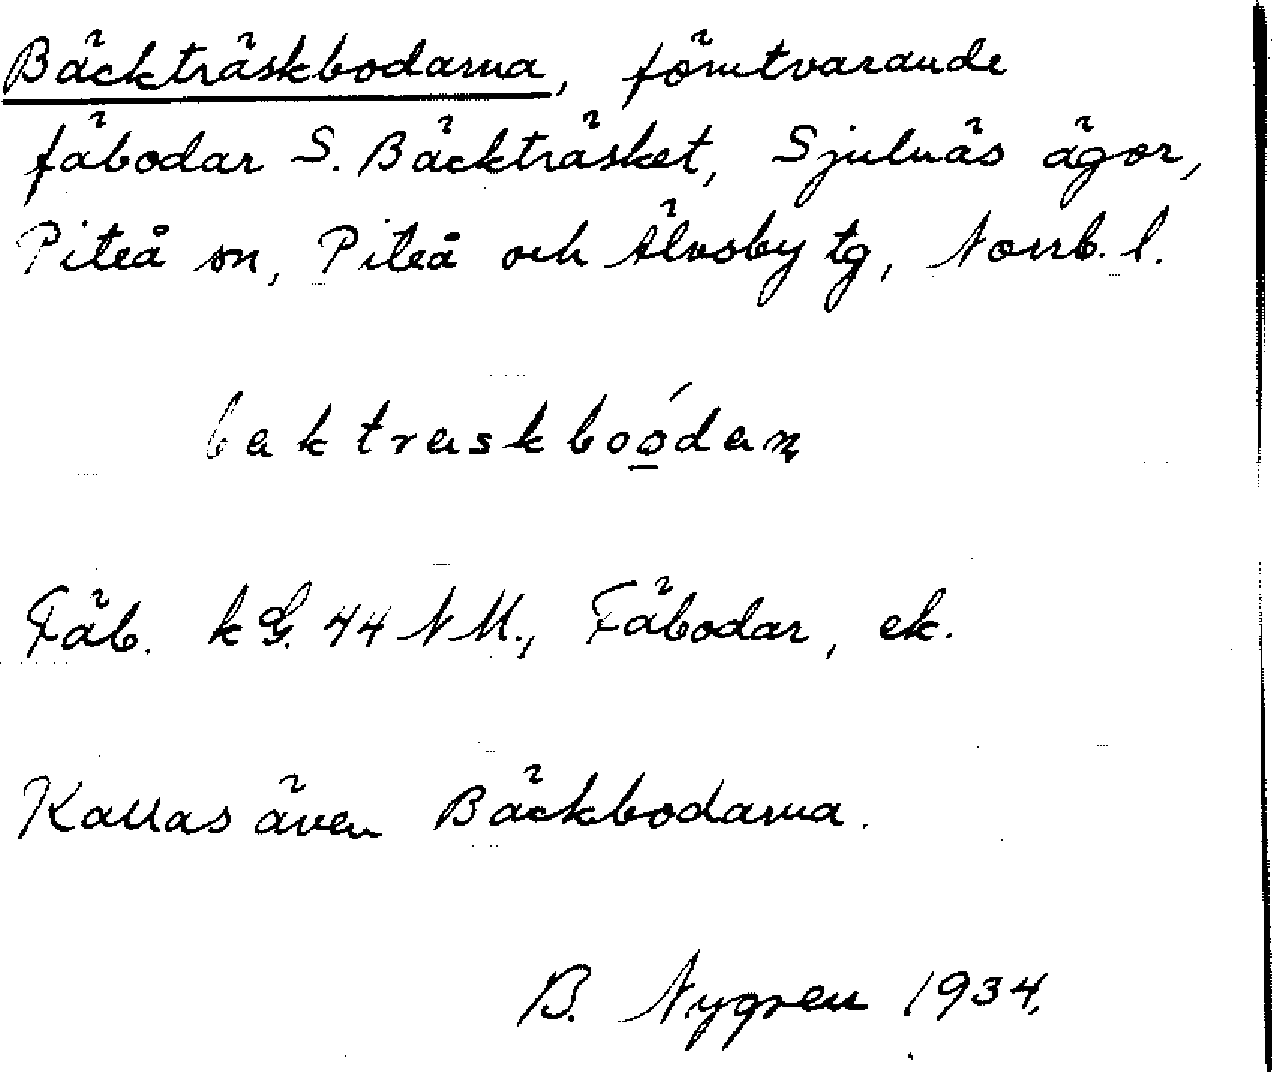 Bäckträskbodarna, förutvarande
fäbodar S. Bäckträsket, Sjulnäs ägor,
Piteå sn, Piteå och Älvsby tg, Norrb. l.
baktraskboódaṇ
Fäb. kG. 44 NM., Fäbodar, ek.
Kallas även Bäckbodarna.
B. Nygren 1934.